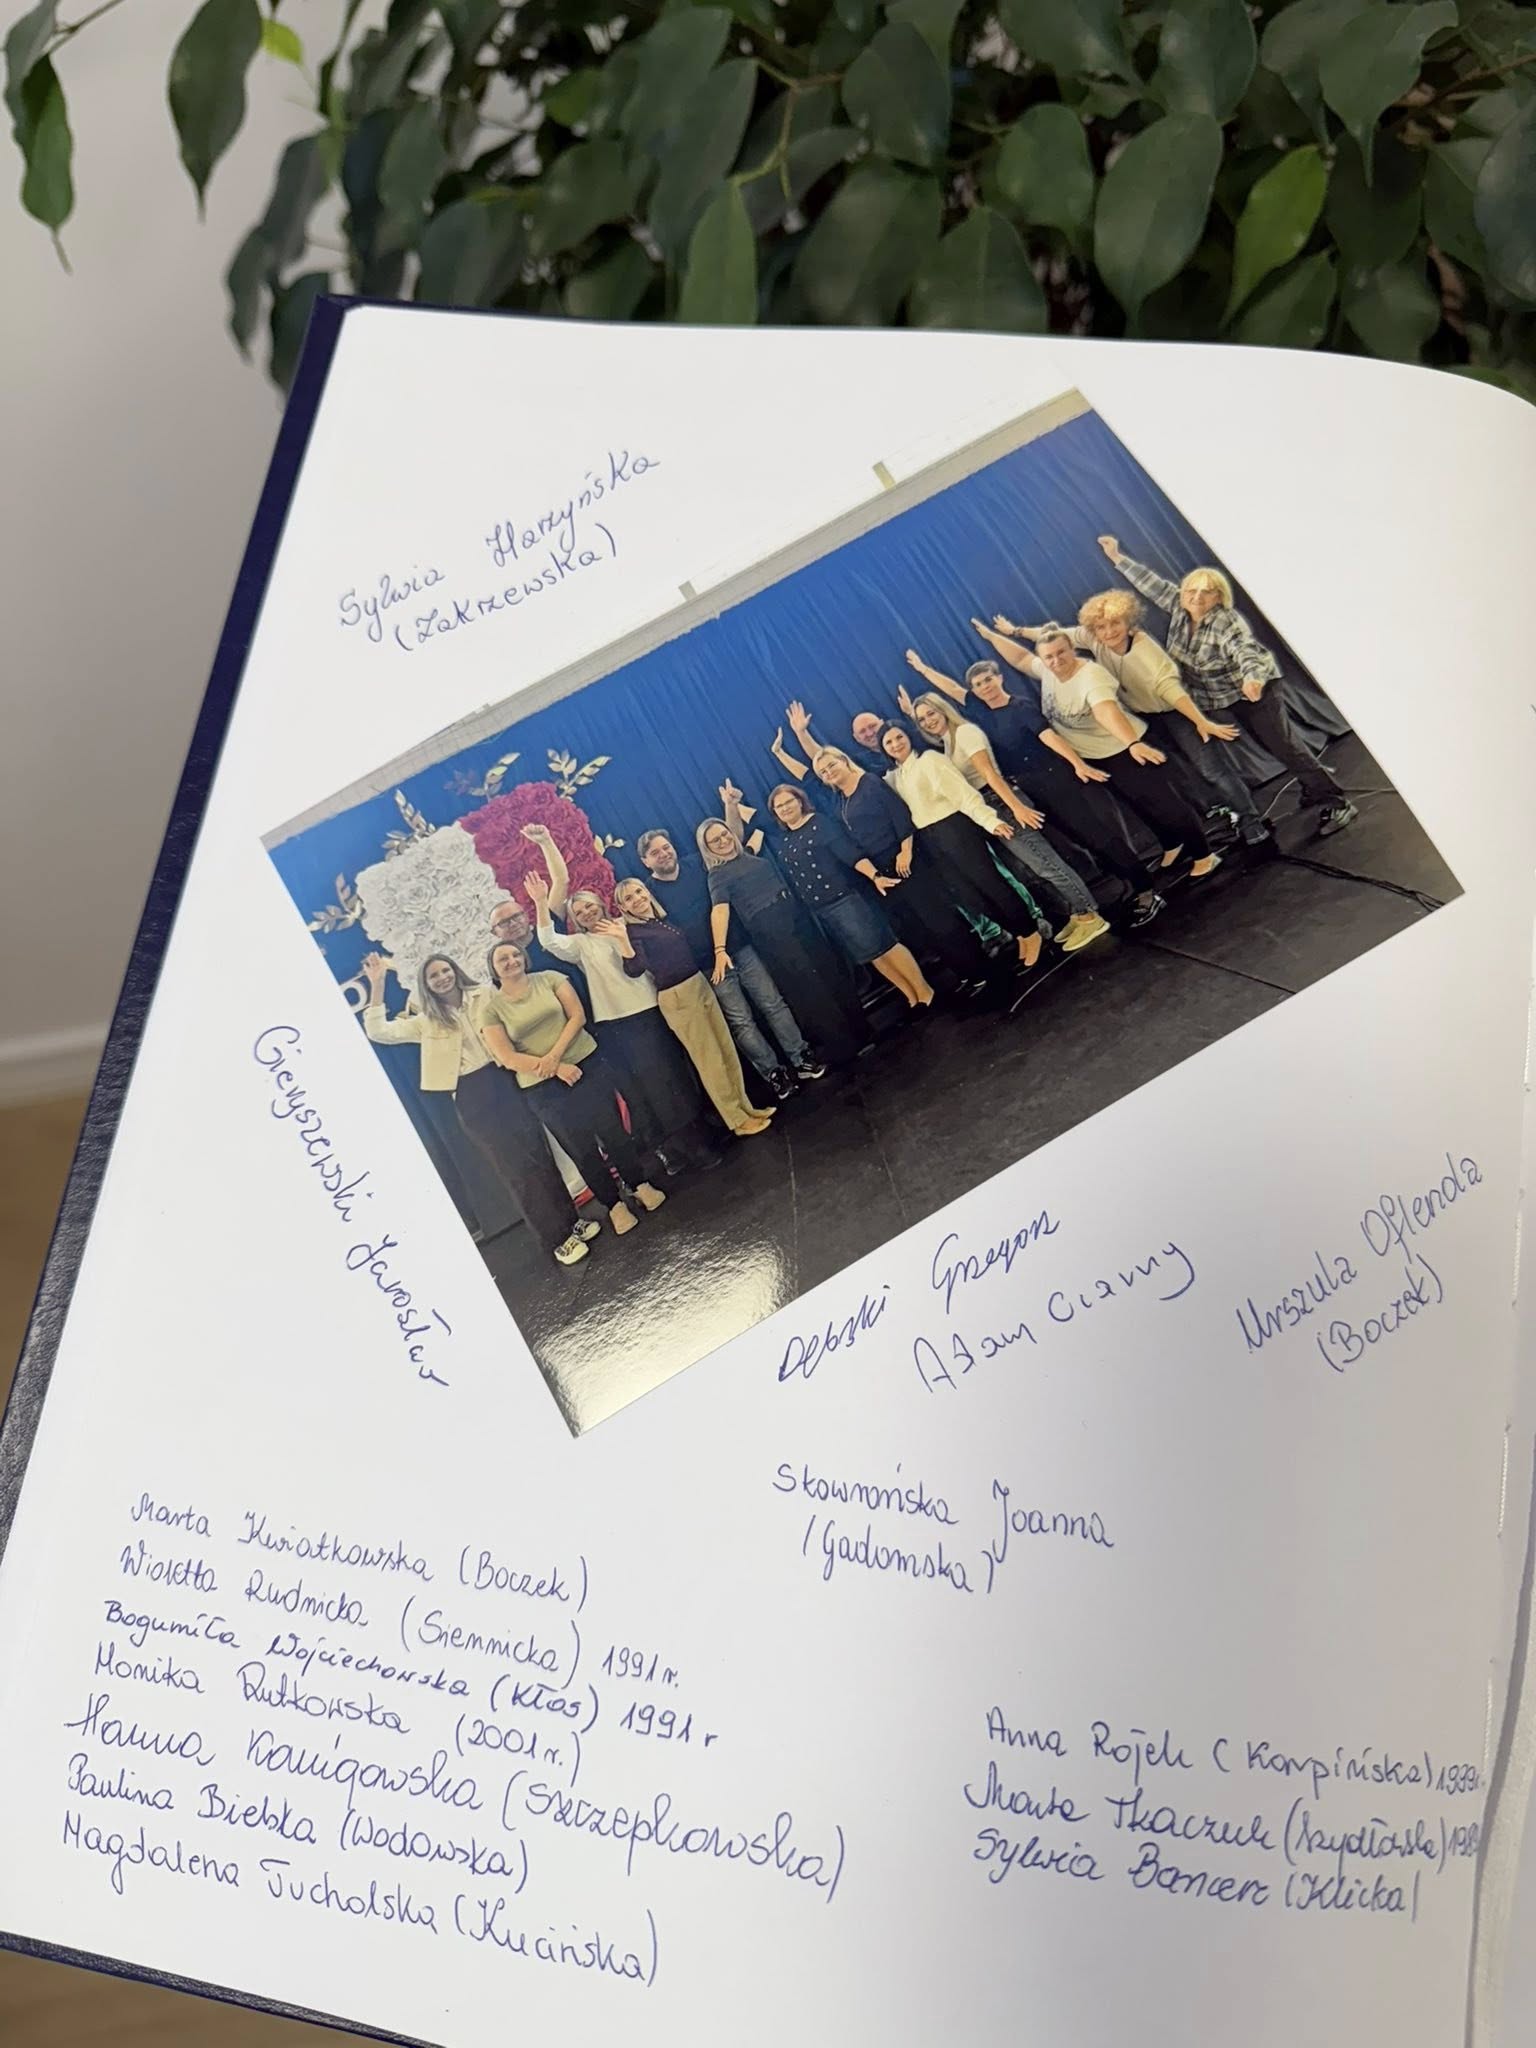 Sylwia Harzyńska
(Zakrzewska)
Gieryszewski Jarosław
Dębski Grzegorz
Adam Czarny
Urszula Oflenda
(Boczek)
Skowrońska Joanna
(Gadomska)
Marta Kwiatkowska (Boczek)
Wioletta Rudnicka (Siennicka) 1991 r.
Bogumiła Wojciechowska (Kłos) 1991 r
Monika Rutkowska (2001 r.)
Hanna Kanigowska (Szczepkowska)
Paulina Bielska (Wodowska)
Magdalena Tucholska (Kucińska)
Anna Rojek (Karpińska) 1999r.
Marta Tkaczuk (Szydłowska)
Sylwia Bancerz (Klicka)